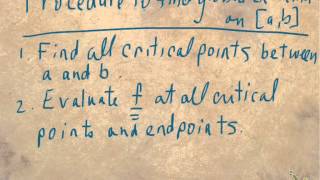 Procedure to find global
on [a,b]
1. Find all critical points between
a and b.
2. Evaluate f at all critical
points and endpoints.